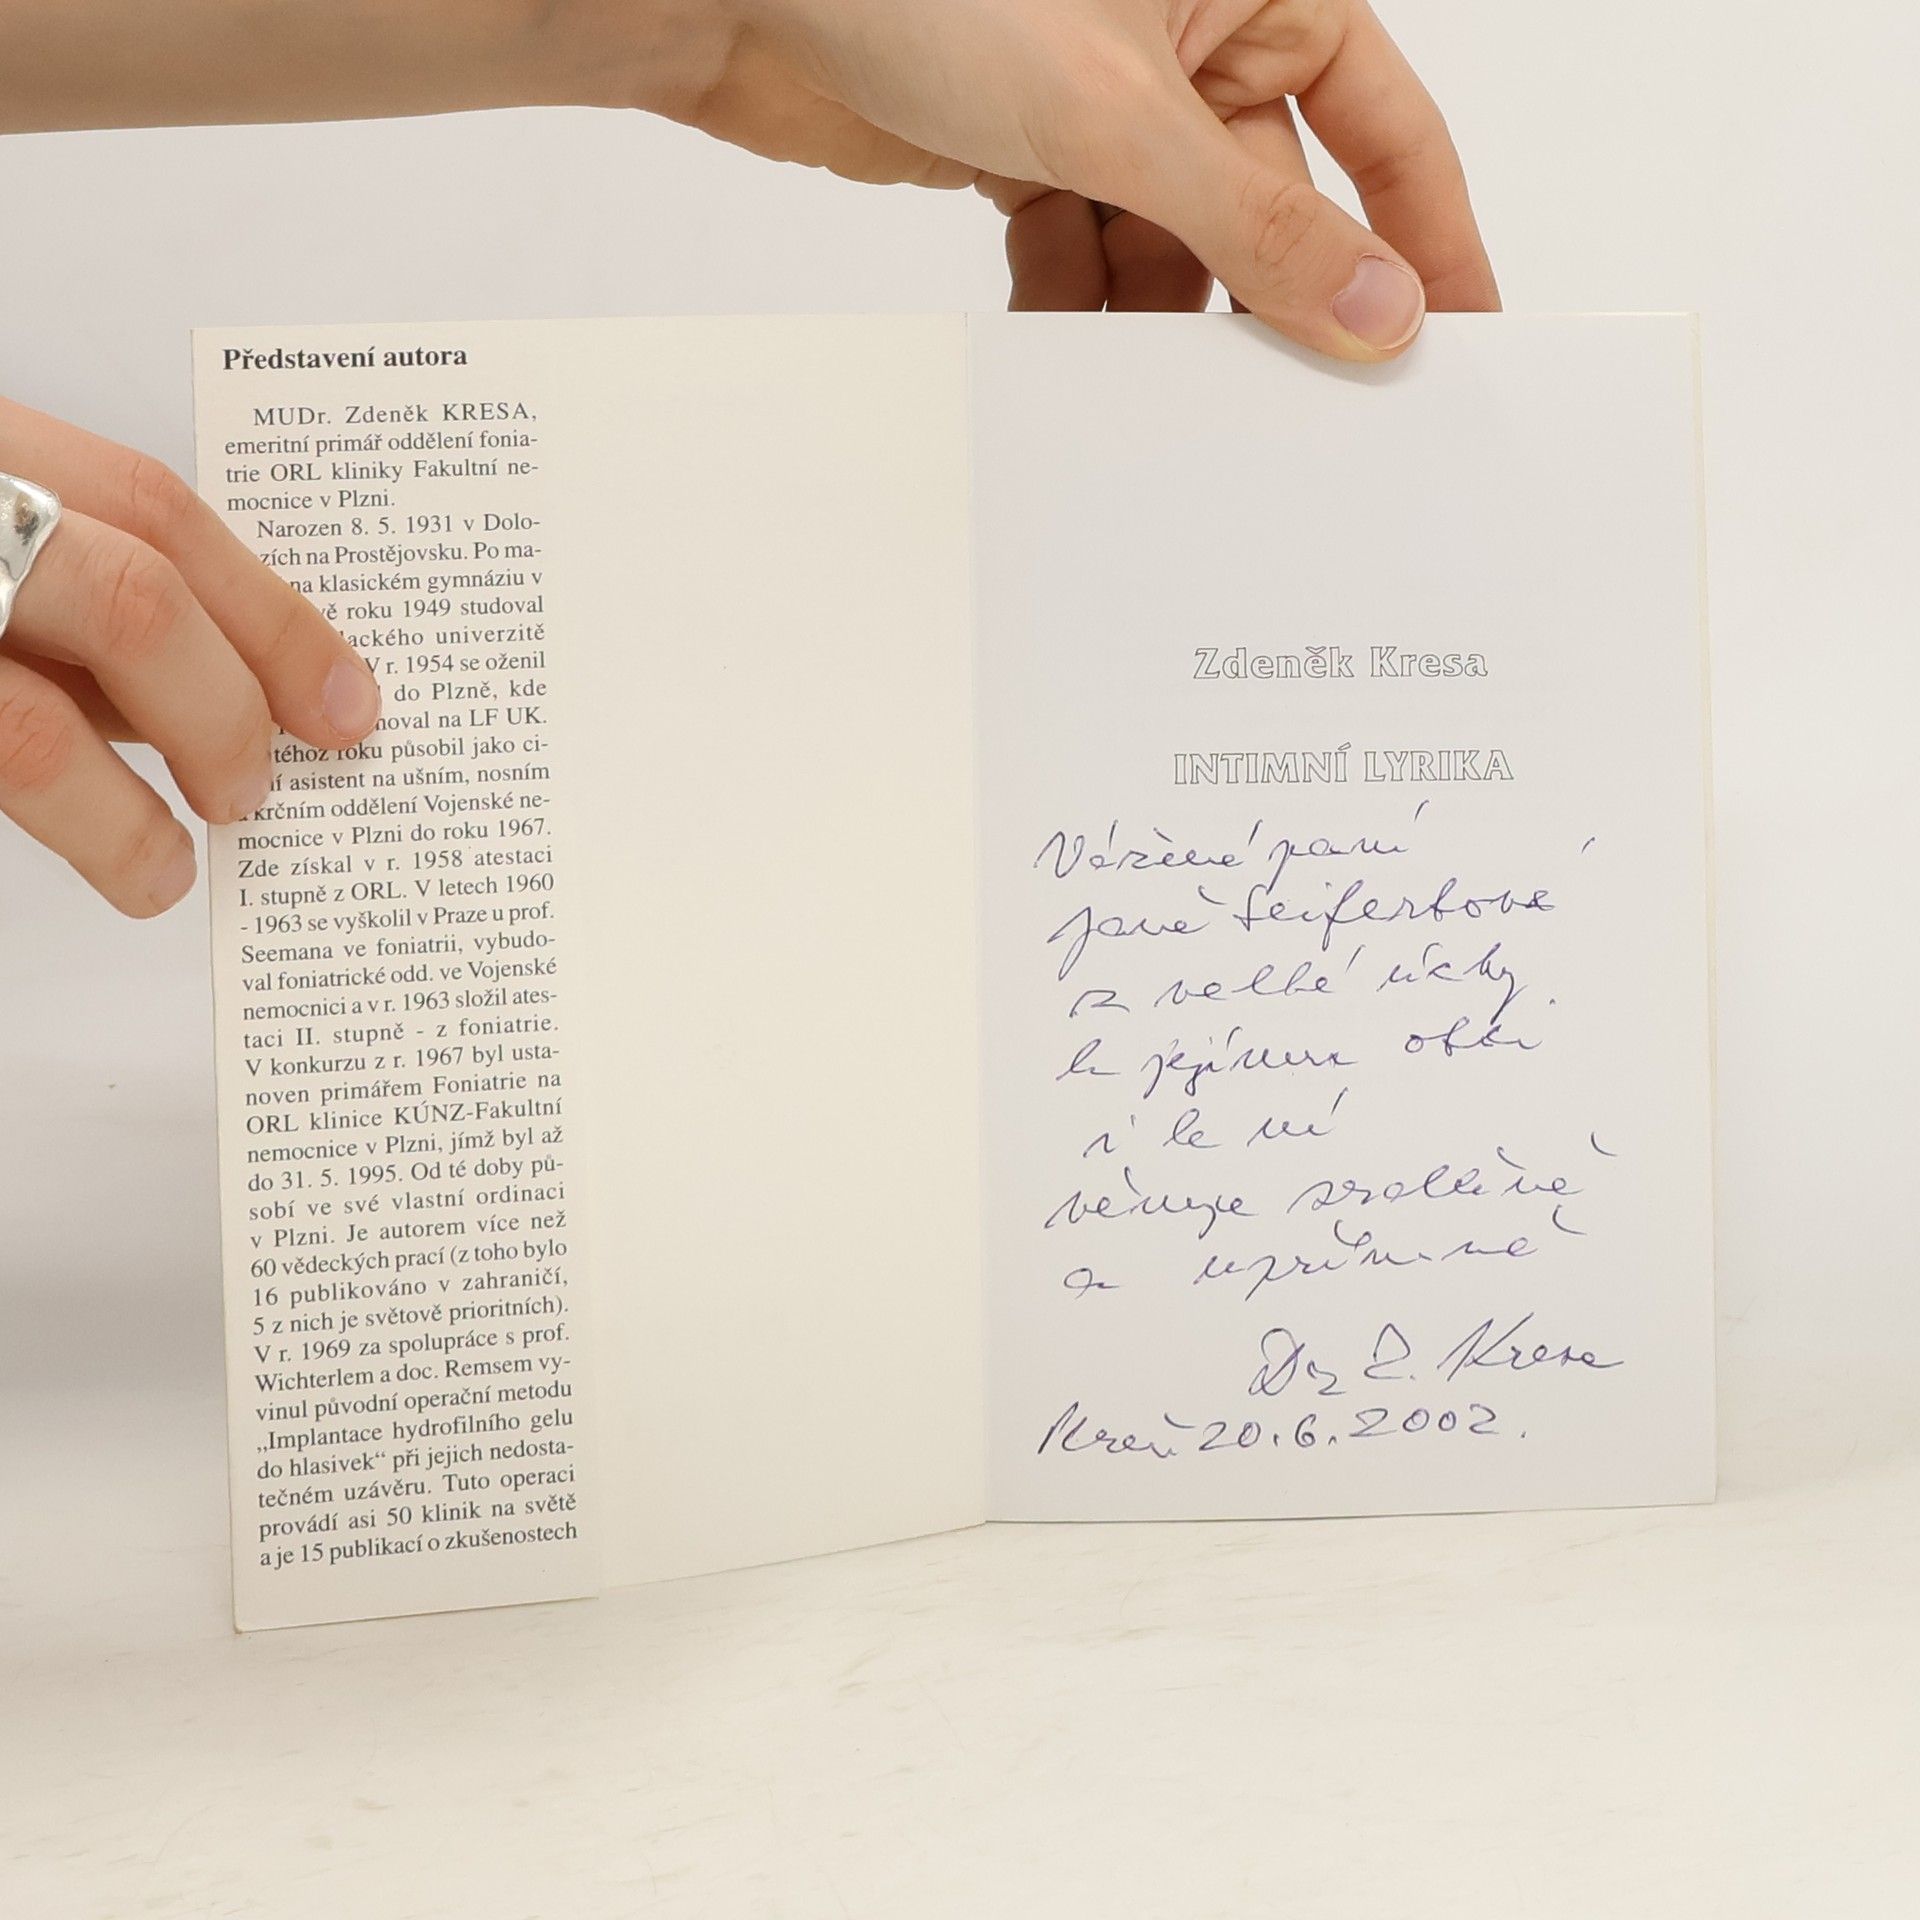 Představení autora
MUDr. Zdeněk KRESA,
emeritní primář oddělení fonia-
trie ORL kliniky Fakultní ne-
mocnice v Plzni.
Narozen 8. 5. 1931 v Dolo-
zích na Prostějovsku. Po ma-
na klasickém gymnáziu v
vě roku 1949 studoval
lackého univerzitě
V r. 1954 se oženil
do Plzně, kde
moval na LF UK.
téhož roku působil jako ci-
ní asistent na ušním, nosním
a krčním oddělení Vojenské ne-
mocnice v Plzni do roku 1967.
Zde získal v r. 1958 atestaci
I. stupně z ORL. V letech 1960
- 1963 se vyškolil v Praze u prof.
Seemana ve foniatrii, vybudo-
val foniatrické odd. ve Vojenské
nemocnici a v r. 1963 složil ates-
taci II. stupně - z foniatrie.
V konkurzu z r. 1967 byl usta-
noven primářem Foniatrie na
ORL klinice KÚNZ-Fakultní
nemocnice v Plzni, jímž byl až
do 31. 5. 1995. Od té doby pů-
sobí ve své vlastní ordinaci
v Plzni. Je autorem více než
60 vědeckých prací (z toho bylo
16 publikováno v zahraničí,
5 z nich je světově prioritních).
V r. 1969 za spolupráce s prof.
Wichterlem a doc. Remsem vy-
vinul původní operační metodu
„Implantace hydrofilního gelu
do hlasivek“ při jejich nedosta-
tečném uzávěru. Tuto operaci
provádí asi 50 klinik na světě
a je 15 publikací o zkušenostech
Zdeněk Kresa
INTIMNÍ LYRIKA
Vážené paní
Janě Seifertové
z velké úcty
k jejímu otci
i k ní
věnuje srdečně
a upřímně
Dr Z. Kresa
20.6.2002.